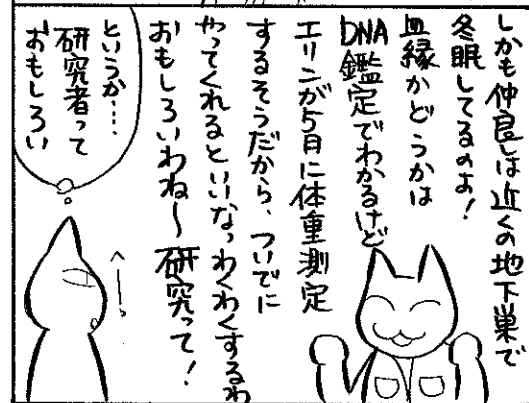 しかも仲良しは近くの地下巣で
冬眠してるのよ!
血縁かどうかは
DNA鑑定でわかるけど
エリンが5月に体重測定
するそうだから、ついでに
やってくれるといいなっわくわくするわ
おもしろいわね〜研究って!
というか…
研究者って
おもしろい
へー。